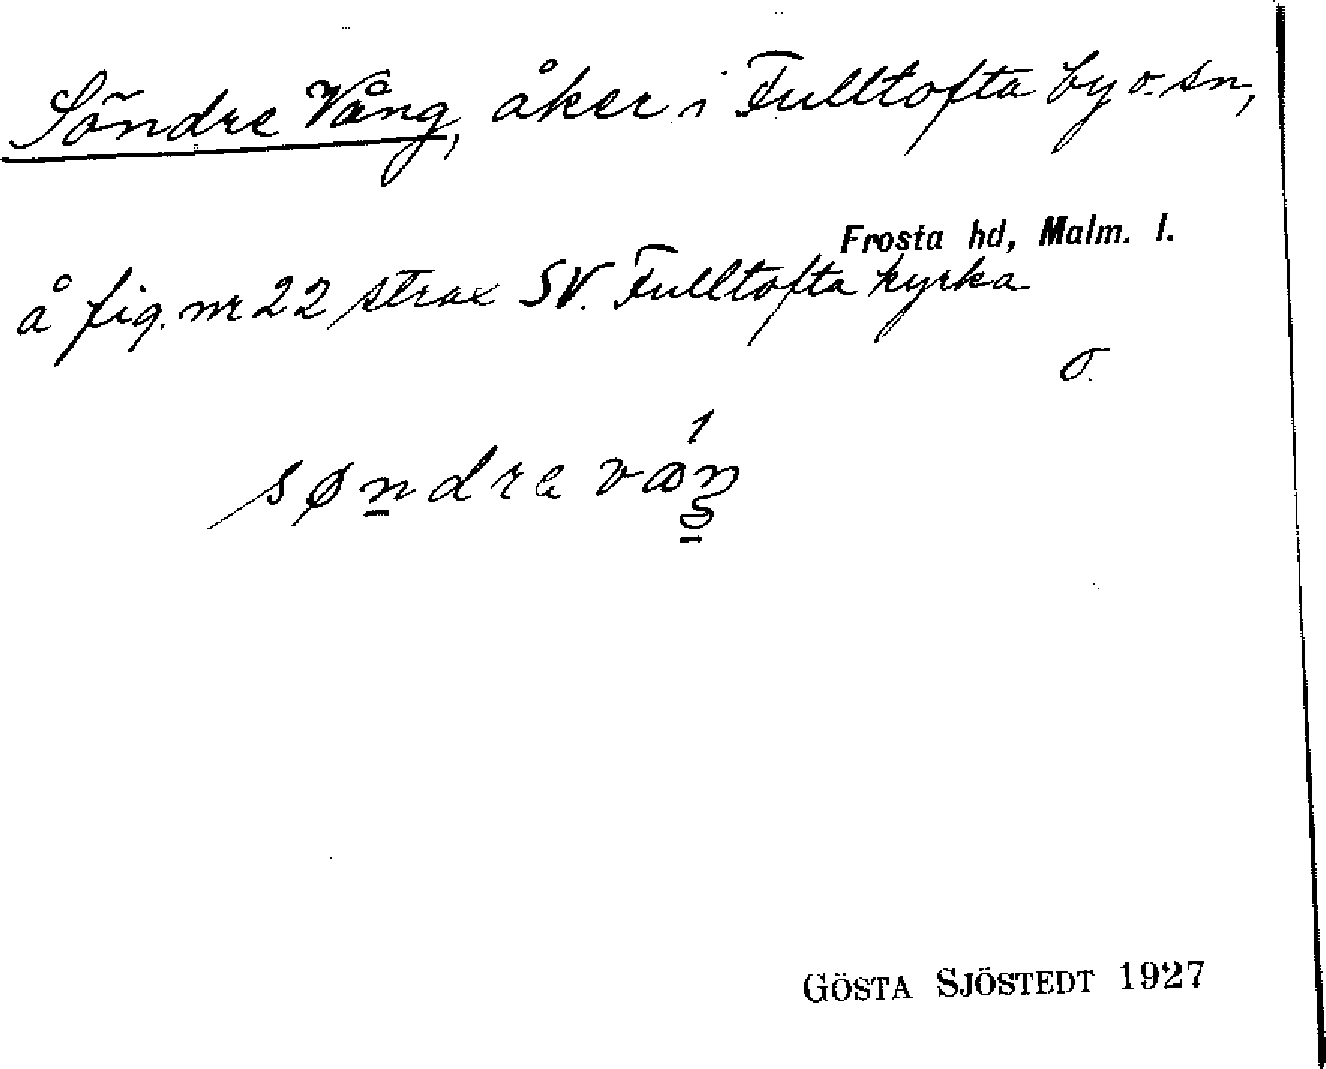 Söndre Vång, åker i Fulltofta by o. sn,
Frosta hd, Malm. l.
å fig. nr 22 strax SV. Fulltofta kyrka
o.
søndra våŋ
GÖSTA SJÖSTEDT 1927